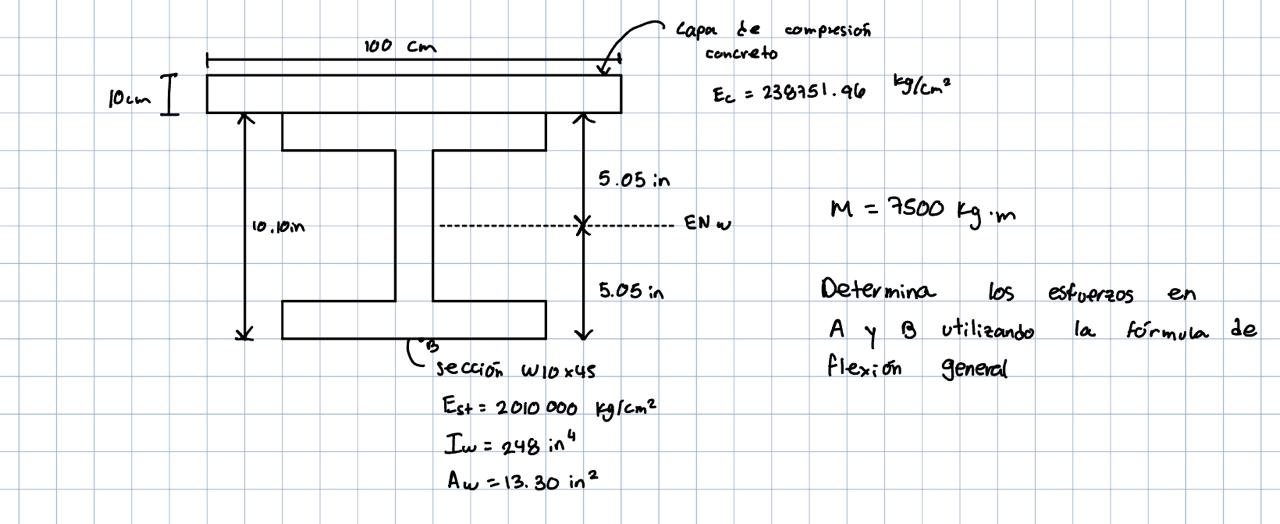 100 cm
Capa de compresión
concreto
10cm
Ec = 238751.96 kg/cm²
5.05 in
M = 7500 kg·m
10.10in
EN w
5.05 in
Determina los esfuerzos en
A y B utilizando la fórmula de
flexión general
B
sección W10x45
Est = 2010 000 kg/cm²
Iw = 248 in⁴
Aw = 13.30 in²